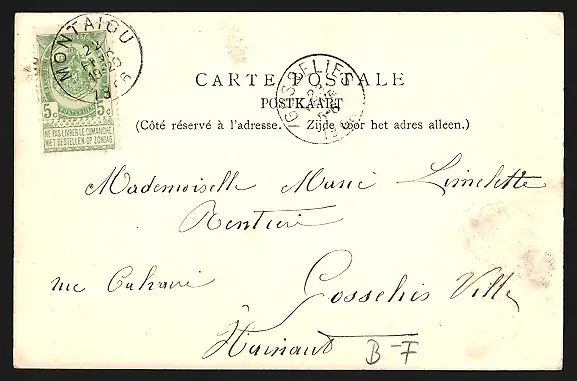 MONTAIGU
GOSSELIES
5c 5c
NE PAS LIVRER LE DIMANCHE
NIET BESTELLEN OP ZONDAG
CARTE POSTALE
POSTKAART
(Côté réservé à l'adresse. — Zijde voor het adres alleen.)
Mademoiselle Marie Limelette
Rentière
rue Calvaire
Gosselies Ville
Hainaut
B-F